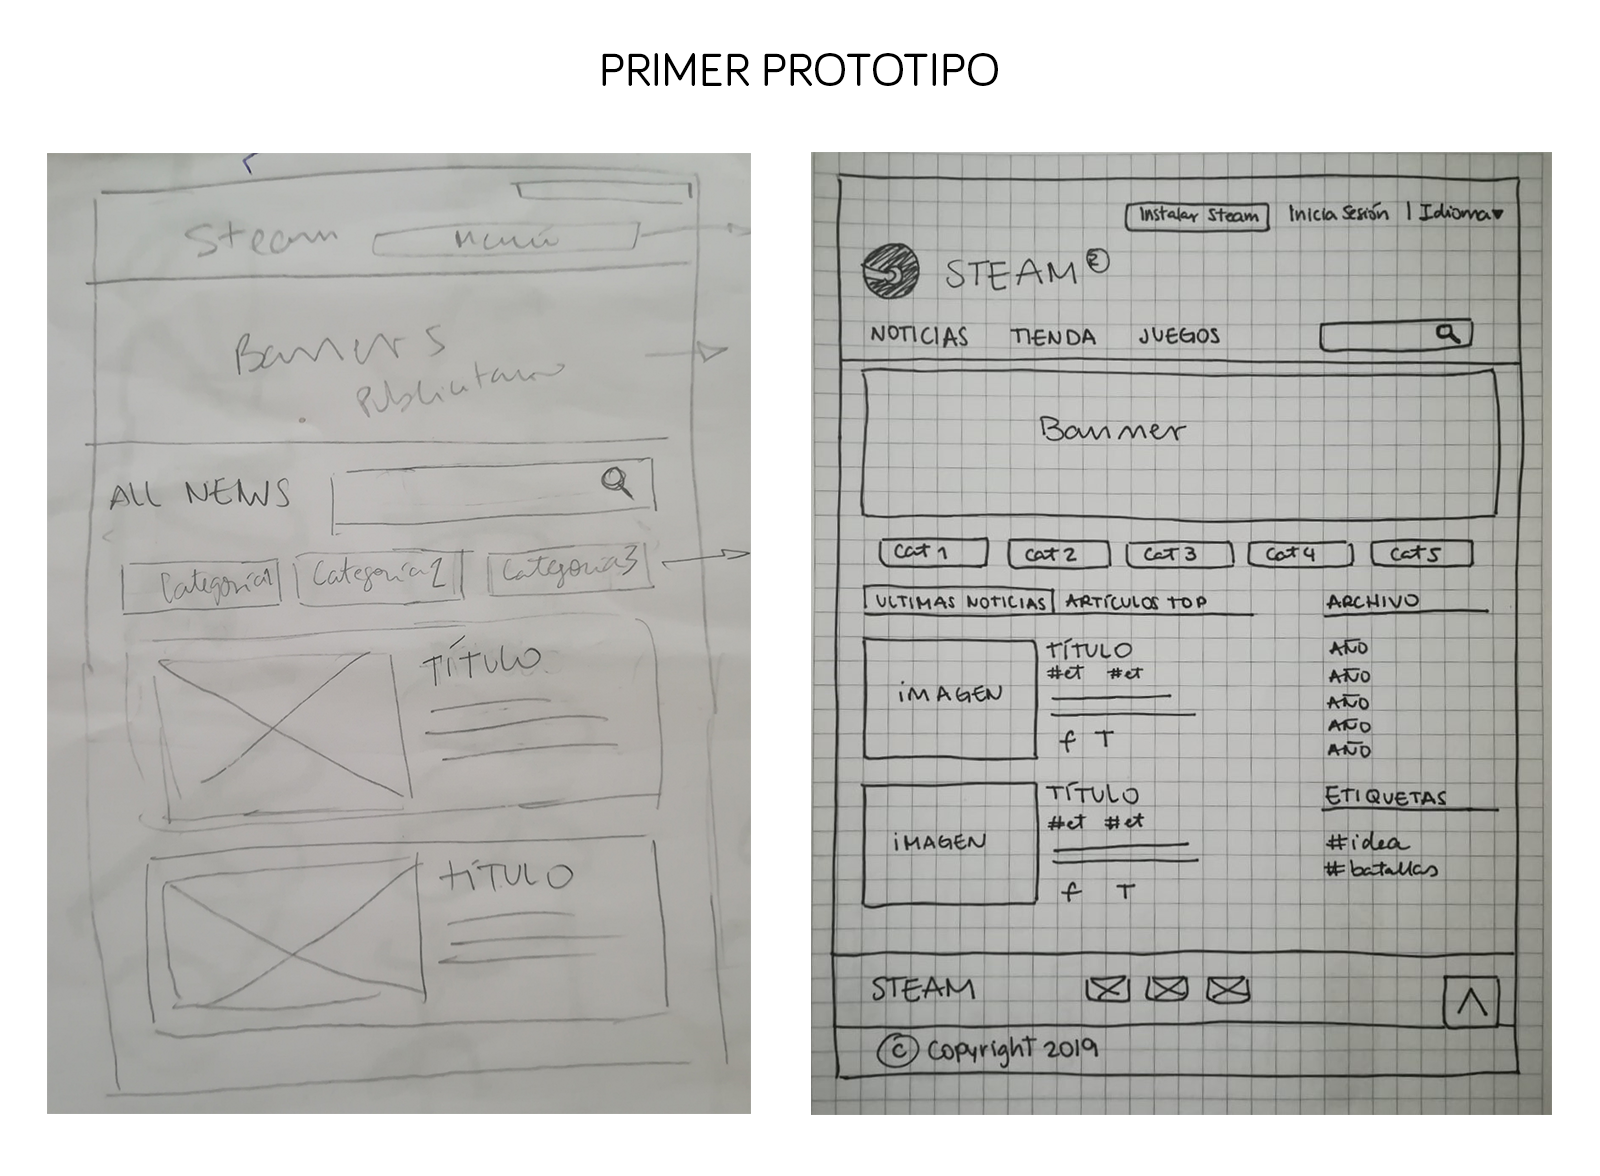 PRIMER PROTOTIPO
Steam Menú
Banners
Publicitario
ALL NEWS
Categoria1 Categoria2 Categoria3
TÍTULO
TÍTULO
Instalar Steam Inicia Sesión | Idioma
STEAM
NOTICIAS TIENDA JUEGOS
Banner
Cat 1 Cat 2 Cat 3 Cat 4 Cat 5
ULTIMAS NOTICIAS ARTÍCULOS TOP ARCHIVO
IMAGEN
TÍTULO
#et #et
f T
AÑO
AÑO
AÑO
AÑO
AÑO
IMAGEN
TÍTULO
#et #et
f T
ETIQUETAS
#idea
#batallas
STEAM
© Copyright 2019